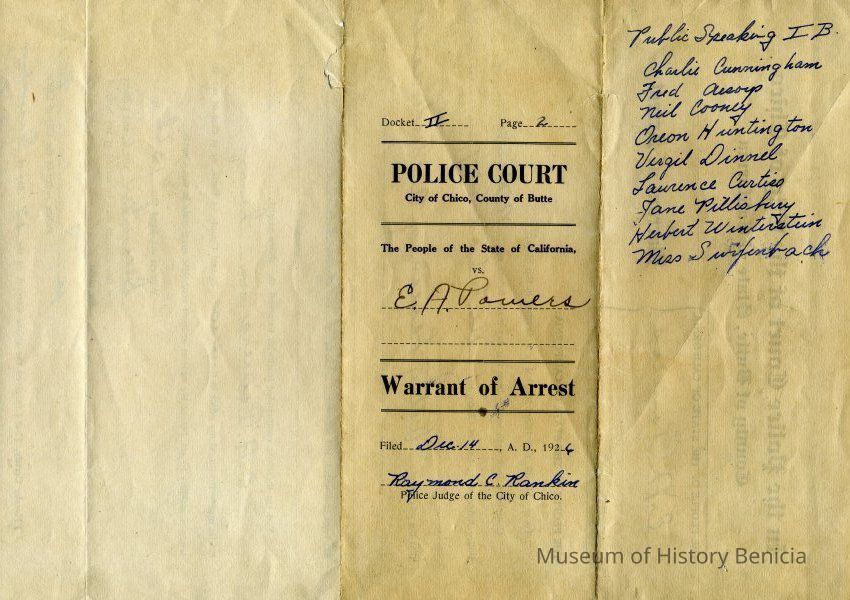 Docket II Page 2
POLICE COURT
City of Chico, County of Butte
The People of the State of California,
vs.
E. A. Powers
Warrant of Arrest
Filed Dec. 14, A. D., 1926
Raymond C. Rankin
Police Judge of the City of Chico.
Public Speaking I B.
Charlie Cunningham
Fred Aesoys
Neil Cooney
Oreon Huntington
Virgil Dinnel
Laurence Curtiss
Jane Pillisbury
Herbert Winterstein
Miss Swifenback
Museum of History Benicia